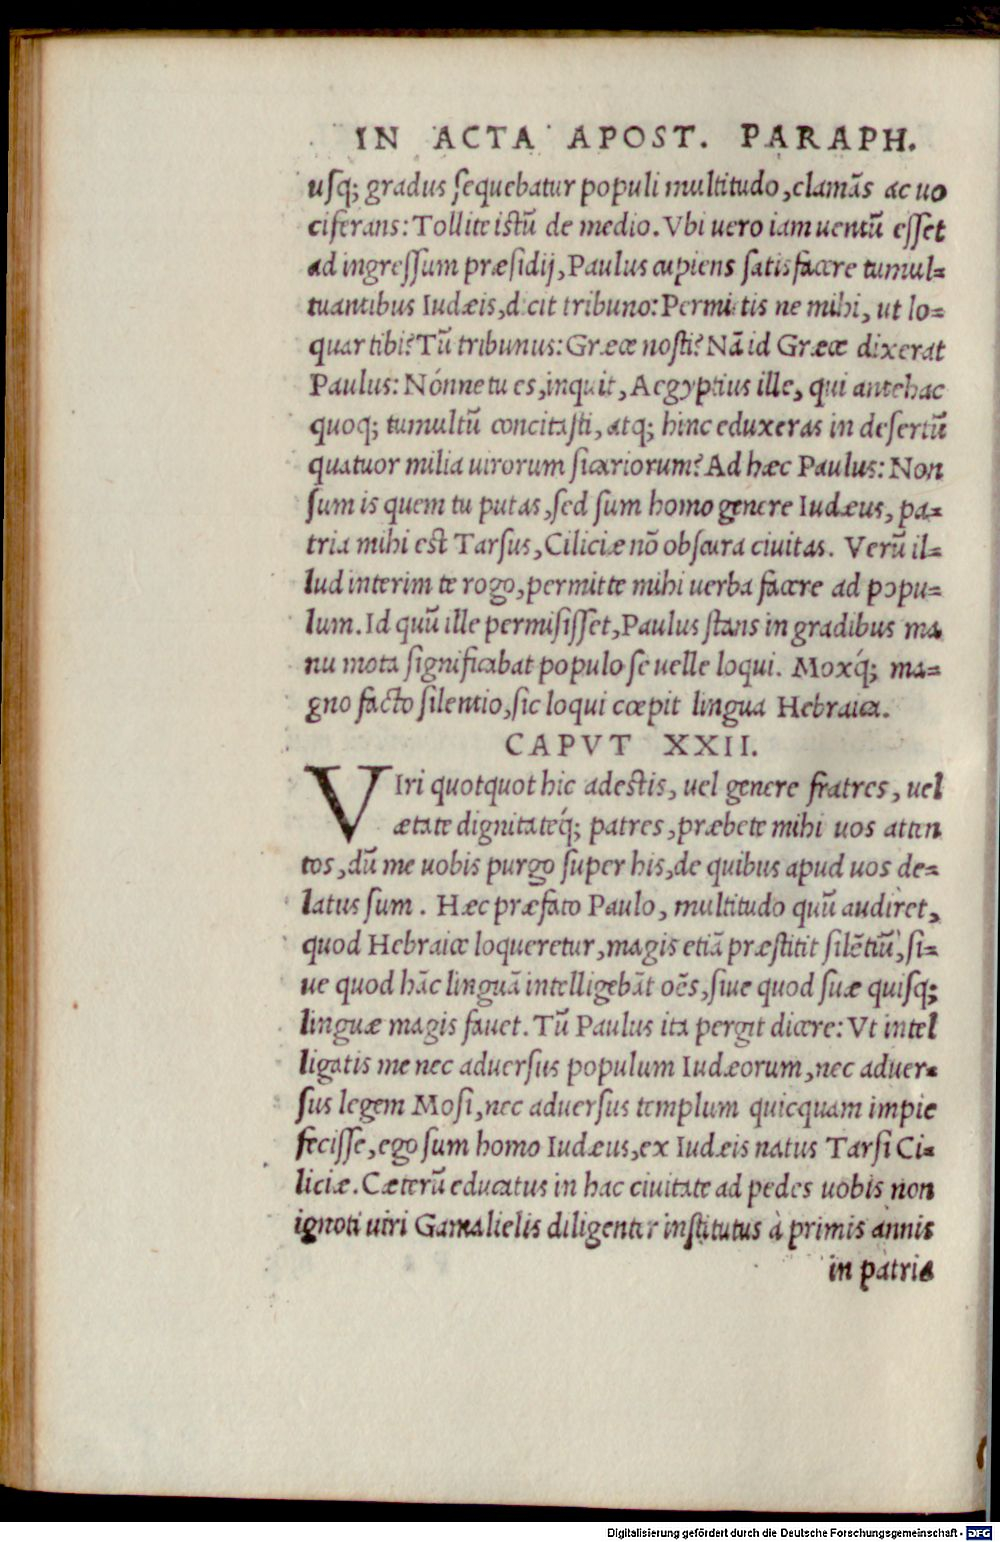 IN ACTA APOST. PARAPH.
usq; gradus sequebatur populi multitudo, clamãs ac uo
ciferans: Tollite istũ de medio. Vbi uero iam uentũ esset
ad ingressum præsidij, Paulus cupiens satisfacere tumul-
tuantibus Iudæis, dicit tribuno: Permittis ne mihi, ut lo-
quar tibi? Tũ tribunus: Græce nosti? Nã id Græce dixerat
Paulus: Nónne tu es, inquit, Aegyptius ille, qui antehac
quoq; tumultũ concitasti, atq; hinc eduxeras in desertũ
quatuor milia uirorum sicariorum? Ad hæc Paulus: Non
sum is quem tu putas, sed sum homo genere Iudæus, pa-
tria mihi est Tarsus, Ciliciæ nõ obscura ciuitas. Verũ il-
lud interim te rogo, permitte mihi uerba facere ad popu-
lum. Id quũ ille permisisset, Paulus stans in gradibus ma
nu mota significabat populo se uelle loqui. Moxq́; ma-
gno facto silentio, sic loqui cœpit lingua Hebraica.
CAPVT XXII.
VIri quotquot hic adestis, uel genere fratres, uel
ætate dignitateq́; patres, præbete mihi uos atten
tos, dũ me uobis purgo super his, de quibus apud uos de-
latus sum. Hæc præfato Paulo, multitudo quũ audiret,
quod Hebraice loqueretur, magis etiã præstitit silẽtiũ, si-
ue quod hãc linguã intelligebãt oẽs, siue quod suæ quisq;
linguæ magis fauet. Tũ Paulus ita pergit dicere: Vt intel
ligatis me nec aduersus populum Iudæorum, nec aduer-
sus legem Mosi, nec aduersus templum quicquam impie
fecisse, ego sum homo Iudæus, ex Iudæis natus Tarsi Ci-
liciæ. Cæterũ educatus in hac ciuitate ad pedes uobis non
ignoti uiri Gamalielis diligenter institutus à primis annis
in patria
Digitalisierung gefördert durch die Deutsche Forschungsgemeinschaft - DFG